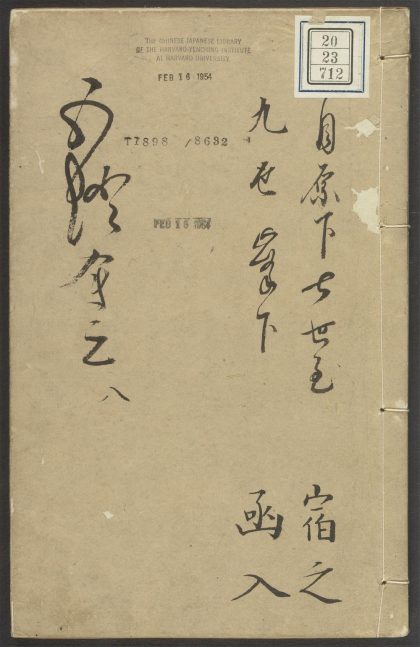 THE CHINESE-JAPANESE LIBRARY
OF THE HARVARD-YENCHING INSTITUTE
AT HARVARD UNIVERSITY
FEB 16 1954
20
23
712
T7898 /8632
FEB 16 1954
青原下七世至
九世 峯下
宿之
函入
五燈会元 八